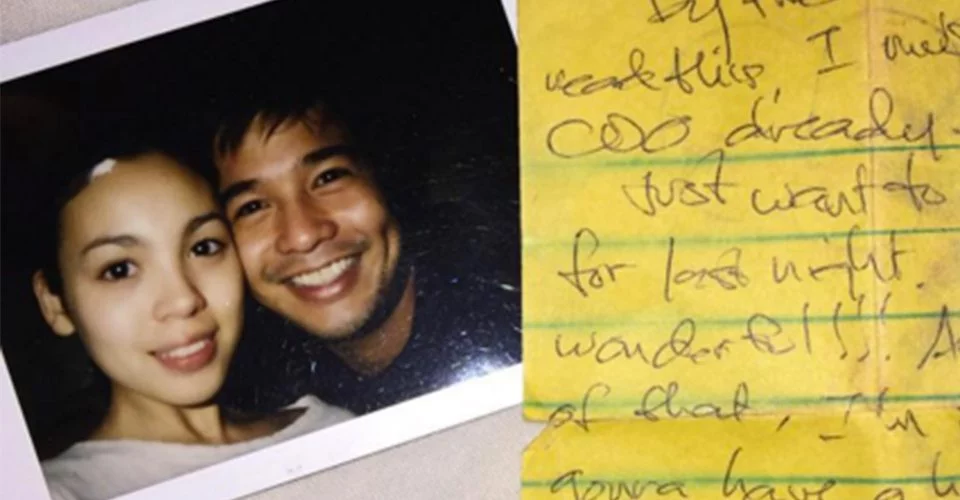 By the
read this, I
CDO already -
Just want to
for last night.
wonderful!!!
of that, I'm
gonna have a